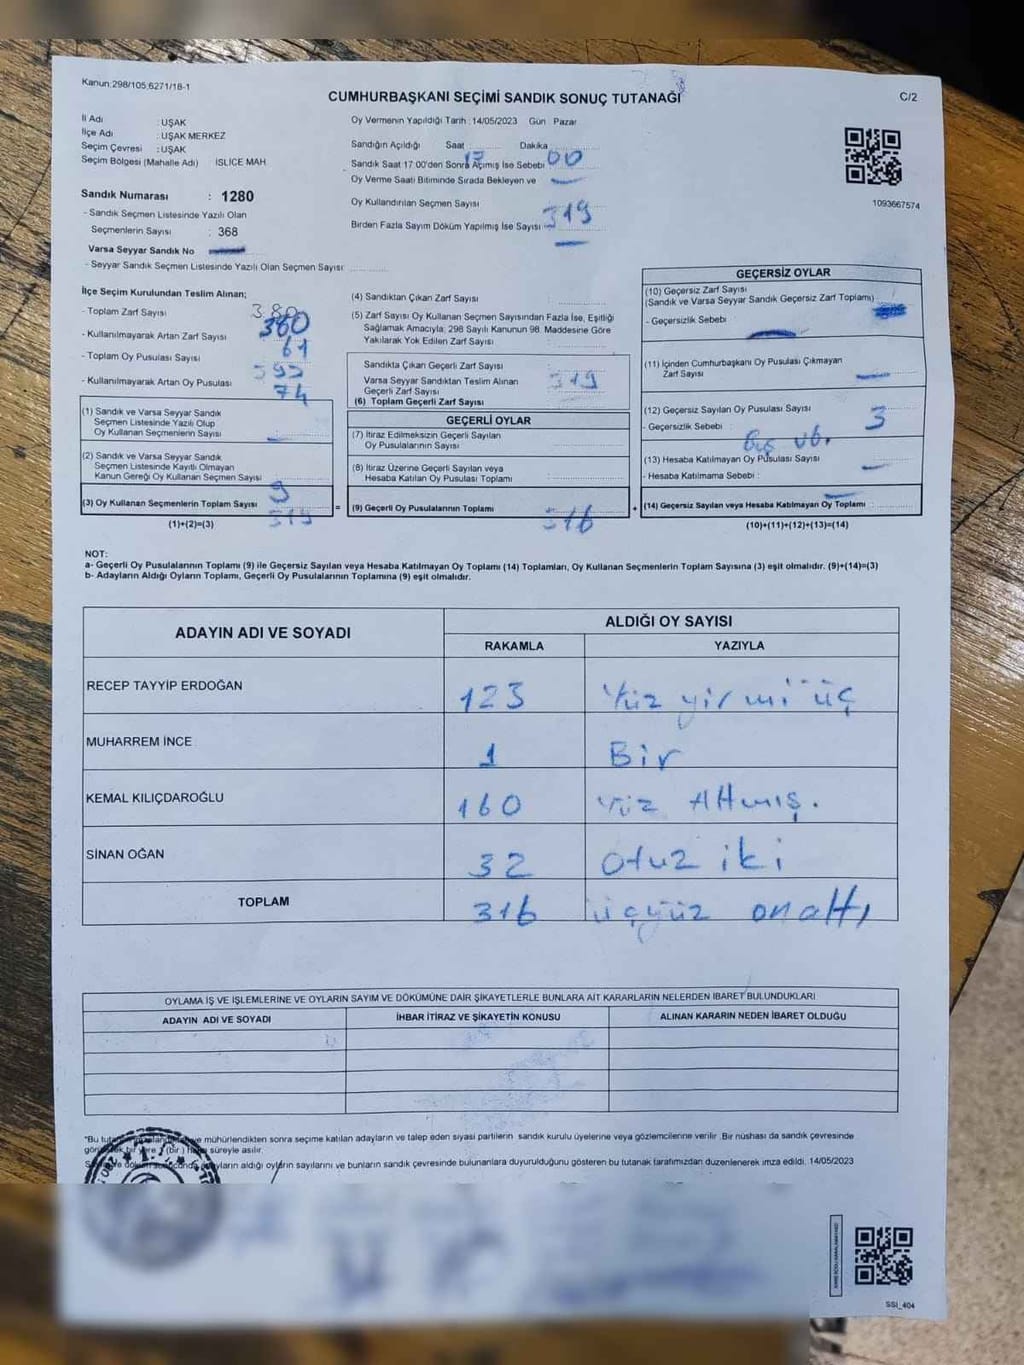 Kanun:298/105,6271/18-1
CUMHURBAŞKANI SEÇİMİ SANDIK SONUÇ TUTANAĞI
C/2
İl Adı : UŞAK
İlçe Adı : UŞAK MERKEZ
Seçim Çevresi : UŞAK
Seçim Bölgesi (Mahalle Adı) İSLİCE MAH
Sandık Numarası : 1280
- Sandık Seçmen Listesinde Yazılı Olan
Seçmenlerin Sayısı : 368
Varsa Seyyar Sandık No
- Seyyar Sandık Seçmen Listesinde Yazılı Olan Seçmen Sayısı:
Oy Vermenin Yapıldığı Tarih : 14/05/2023 Gün : Pazar
Sandığın Açıldığı Saat : 17 Dakika : 00
Sandık Saat 17:00'den Sonra Açımış İse Sebebi
Oy Verme Saati Bitiminde Sırada Bekleyen ve
Oy Kullandırılan Seçmen Sayısı
Birden Fazla Sayım Döküm Yapılmış İse Sayısı
319
1093667574
İlçe Seçim Kurulundan Teslim Alınan;
- Toplam Zarf Sayısı 380
380
- Kullanılmayarak Artan Zarf Sayısı 61
- Toplam Oy Pusulası Sayısı
- Kullanılmayarak Artan Oy Pusulası 74
(1) Sandık ve Varsa Seyyar Sandık
Seçmen Listesinde Yazılı Olup
Oy Kullanan Seçmenlerin Sayısı
(2) Sandık ve Varsa Seyyar Sandık
Seçmen Listesinde Kayıtlı Olmayan
Kanun Gereği Oy Kullanan Seçmen Sayısı 9
(3) Oy Kullanan Seçmenlerin Toplam Sayısı 319
(1)+(2)=(3)
(4) Sandıktan Çıkan Zarf Sayısı
(5) Zarf Sayısı Oy Kullanan Seçmen Sayısından Fazla İse, Eşitliği
Sağlamak Amacıyla; 298 Sayılı Kanunun 98. Maddesine Göre
Yakılarak Yok Edilen Zarf Sayısı
Sandıkta Çıkan Geçerli Zarf Sayısı
Varsa Seyyar Sandıktan Teslim Alınan
Geçerli Zarf Sayısı
(6) Toplam Geçerli Zarf Sayısı
319
GEÇERLİ OYLAR
(7) İtiraz Edilmeksizin Geçerli Sayılan
Oy Pusulalarının Sayısı
(8) İtiraz Üzerine Geçerli Sayılan veya
Hesaba Katılan Oy Pusulası Toplamı
= (9) Geçerli Oy Pusulalarının Toplamı 316
GEÇERSİZ OYLAR
(10) Geçersiz Zarf Sayısı
(Sandık ve Varsa Seyyar Sandık Geçersiz Zarf Toplamı)
- Geçersizlik Sebebi :
(11) İçinden Cumhurbaşkanı Oy Pusulası Çıkmayan
Zarf Sayısı
(12) Geçersiz Sayılan Oy Pusulası Sayısı 3
- Geçersizlik Sebebi : Boş vb.
(13) Hesaba Katılmayan Oy Pusulası Sayısı
- Hesaba Katılmama Sebebi :
+ (14) Geçersiz Sayılan veya Hesaba Katılmayan Oy Toplamı
(10)+(11)+(12)+(13)=(14)
NOT:
a- Geçerli Oy Pusulalarının Toplamı (9) ile Geçersiz Sayılan veya Hesaba Katılmayan Oy Toplamı (14) Toplamları, Oy Kullanan Seçmenlerin Toplam Sayısına (3) eşit olmalıdır. (9)+(14)=(3)
b- Adayların Aldığı Oyların Toplamı, Geçerli Oy Pusulalarının Toplamına (9) eşit olmalıdır.
ADAYIN ADI VE SOYADI
ALDIĞI OY SAYISI
RAKAMLA YAZIYLA
RECEP TAYYİP ERDOĞAN 123 Yüz yirmi üç
MUHARREM İNCE 1 Bir
KEMAL KILIÇDAROĞLU 160 Yüz Altmış.
SİNAN OĞAN 32 Otuz iki
TOPLAM 316 üçyüz onaltı
OYLAMA İŞ VE İŞLEMLERİNE VE OYLARIN SAYIM VE DÖKÜMÜNE DAİR ŞİKAYETLERLE BUNLARA AİT KARARLARIN NELERDEN İBARET BULUNDUKLARI
ADAYIN ADI VE SOYADI İHBAR İTİRAZ VE ŞİKAYETİN KONUSU ALINAN KARARIN NEDEN İBARET OLDUĞU
mühürlendikten sonra seçime katılan adayların ve talep eden siyasi partilerin sandık kurulu üyelerine veya gözlemcilerine verilir .Bir nüshası da sandık çevresinde
süreyle asılır.
aldığı oyların sayılarını ve bunların sandık çevresinde bulunanlara duyurulduğunu gösteren bu tutanak tarafımızdan düzenlenerek imza edildi. 14/05/2023
SSI_404